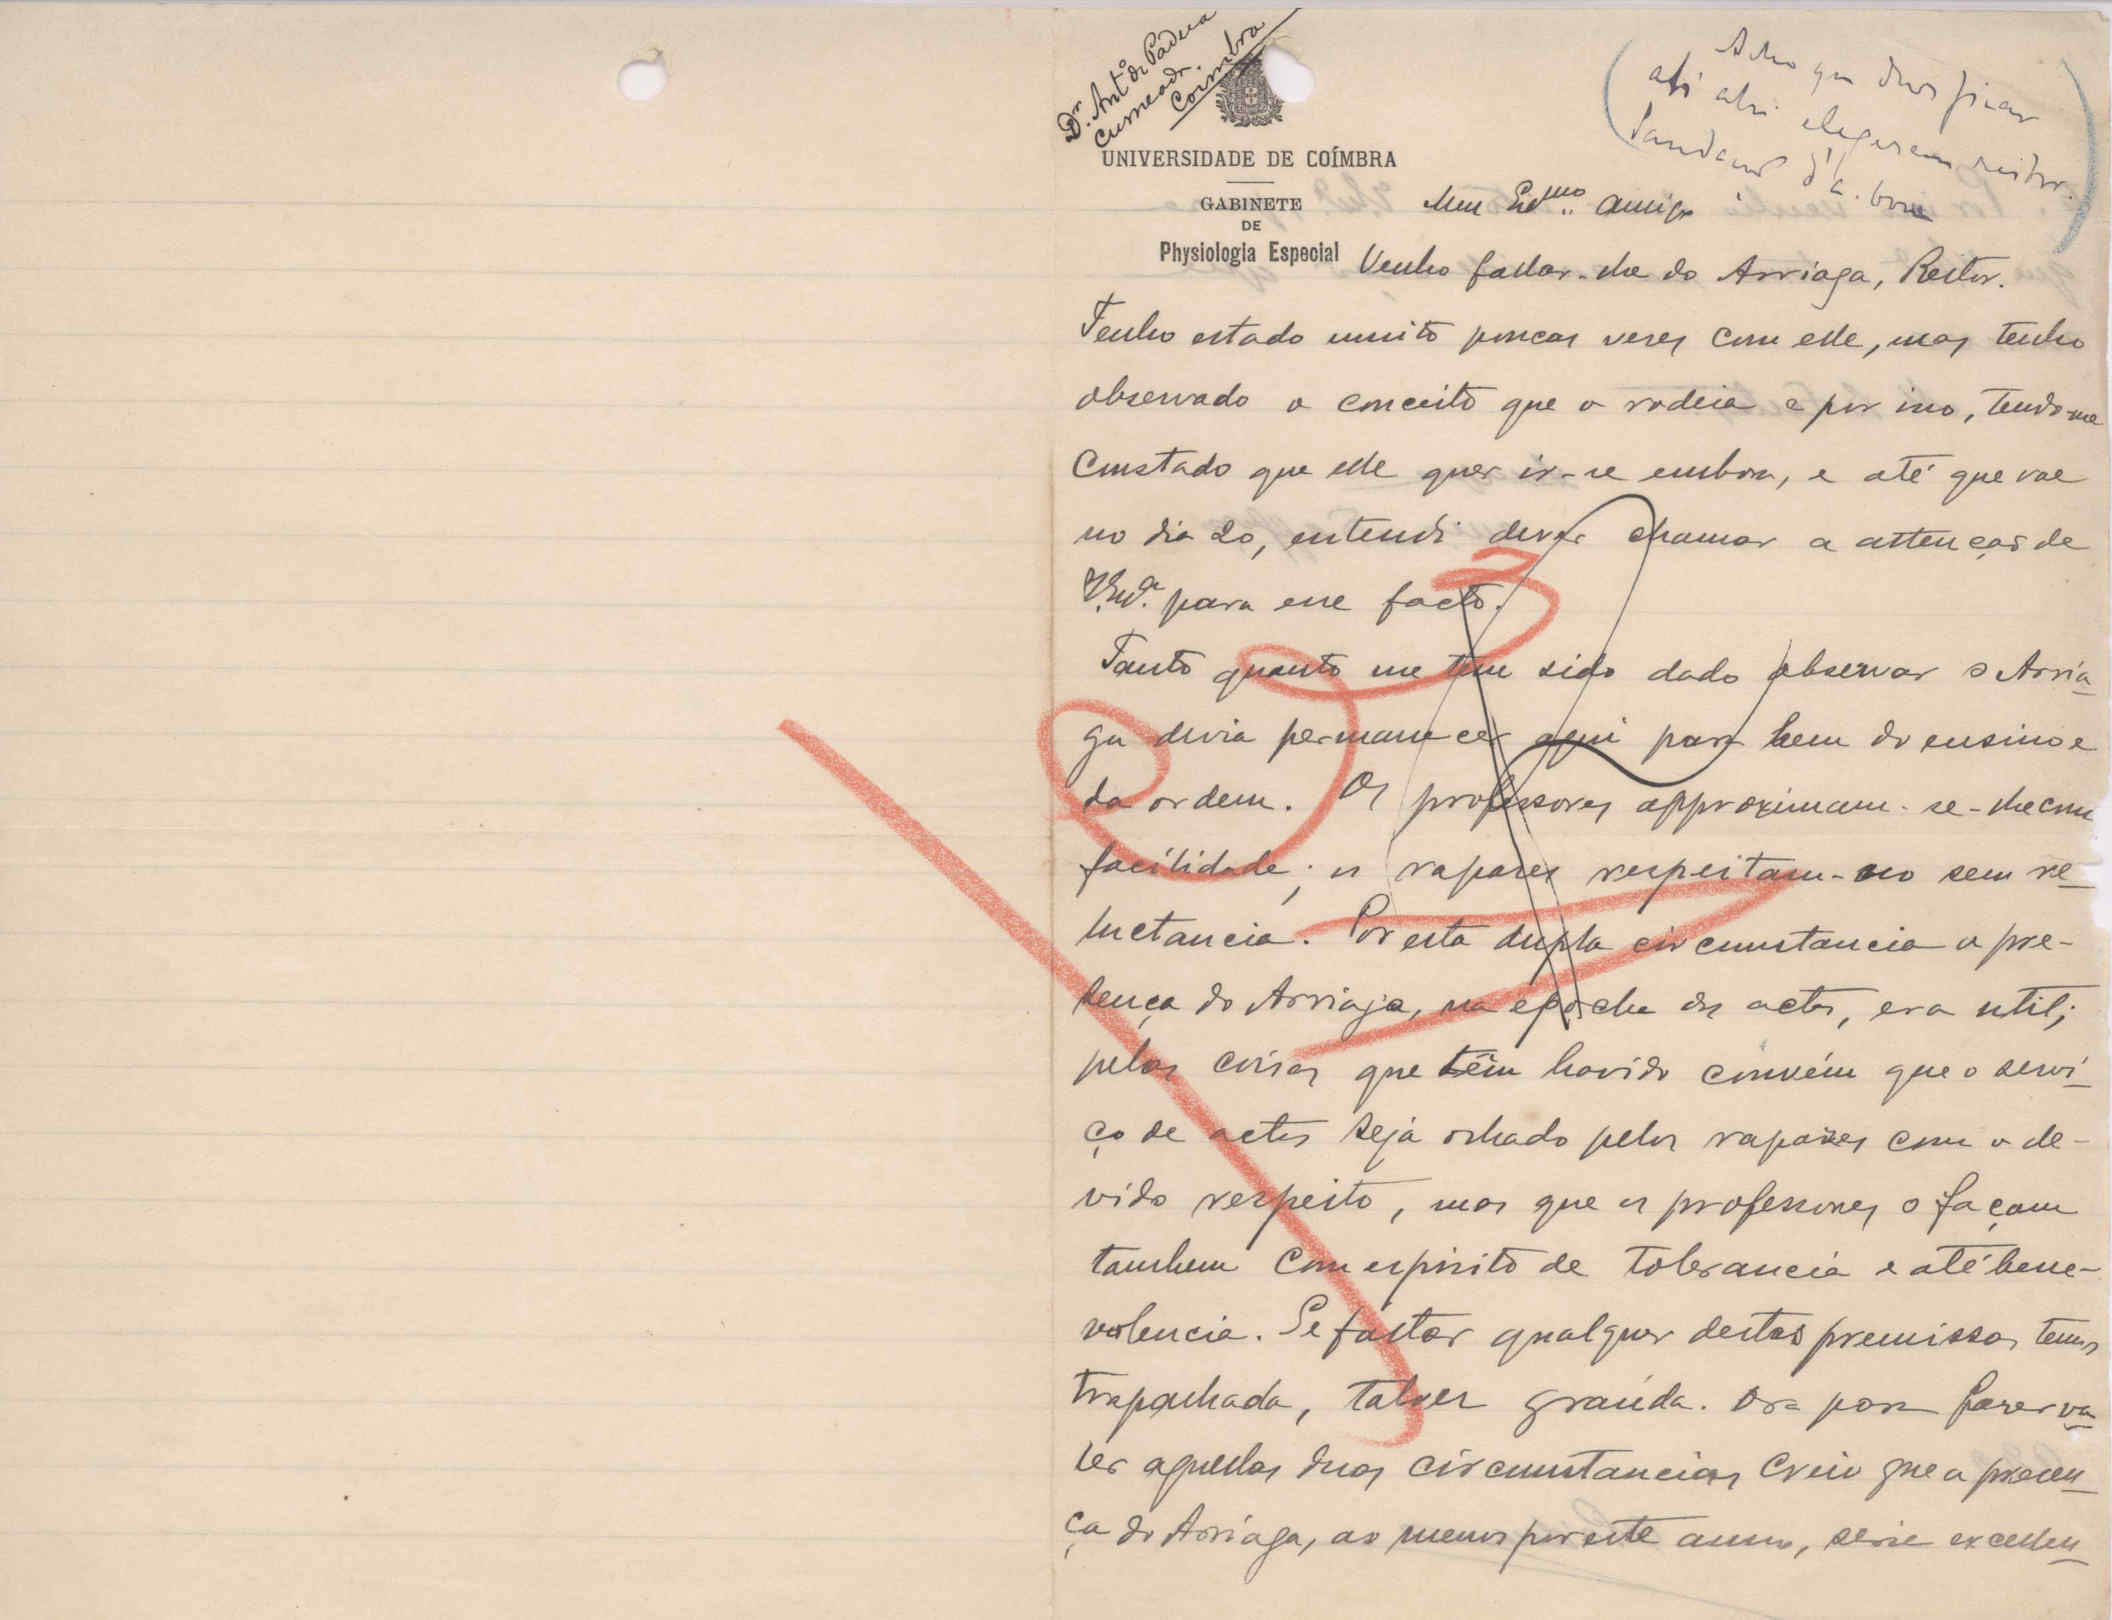 Dr. Antº de Padua
Cumeada.
Coimbra
Acho que deve ficar
até elegerem reitor.
UNIVERSIDADE DE COÍMBRA
GABINETE
DE
Physiologia Especial
Meu Exmo amigo
Venho fallar-lhe do Arriaga, Reitor.
Tenho estado muito poucas vezes com elle, mas tenho
observado o conceito que o rodeia e por isso, tendo-me
constado que elle quer ir-se embora, e até que vae
no dia 20, entendi dever chamar a attenção de
V. Exª. para esse facto.
Tanto quanto me tem sido dado observar o Arria-
ga devia permanecer aqui para bem do ensino e
da ordem. Os professores approximam-se-lhe com
facilidade; os rapazes respeitam-no sem re-
luctancia. Por esta dupla circumstancia a pre-
sença do Arriaga, na épocha dos actos, era util;
pelas coisas que têm havido convém que o servi-
ço de actos seja olhado pelos rapazes com o de-
vido respeito, mas que os professores o façam
tambem com espirito de tolerancia e até bene-
volencia. Se faltar qualquer destas premissas temos
trapalhada, talvez graúda. Ora para fazer va-
ler aquellas duas circumstancias creio que a presen-
ça do Arriaga, ao menos por este anno, seria excellen-